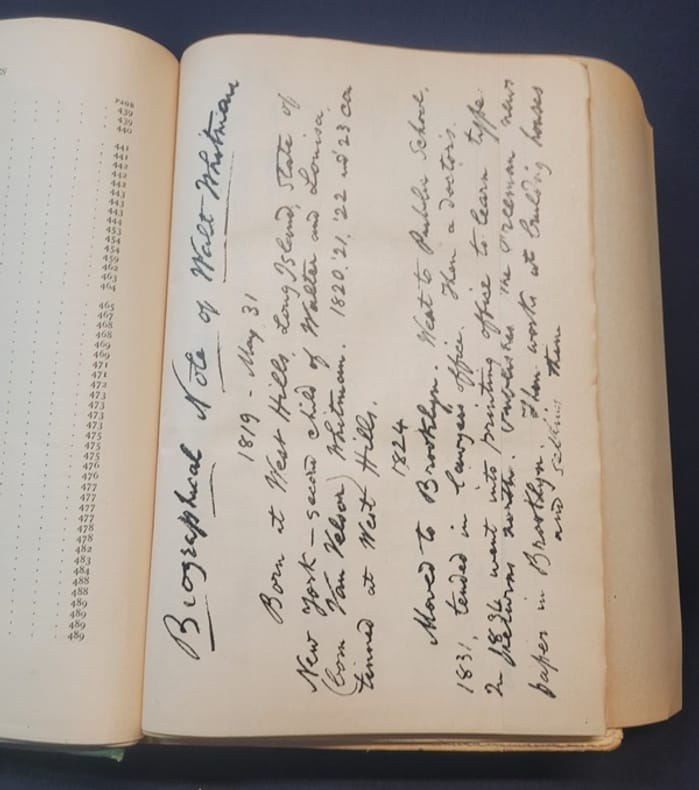 PAGE
439
439
440
441
441
442
442
443
443
444
453
454
454
459
462
463
464
465
467
468
468
469
471
472
473
473
473
475
475
475
476
476
477
477
477
477
478
478
482
483
484
488
488
489
489
489
489
Biographical Note of Walt Whitman
1819 - May 31
Born at West Hills, Long Island, State of
New York - second child of Walter and Louisa,
(born Van Velsor) Whitman. 1820 '21, '22 and '23 con
tinued at West Hills.
1824
Moved to Brooklyn. Went to Public School,
1831, tended in lawyers office. Then a doctor's.
In 1834 went into printing office to learn type
returns north. Publishes The Freeman news
paper in Brooklyn. Then works at building houses
and selling them